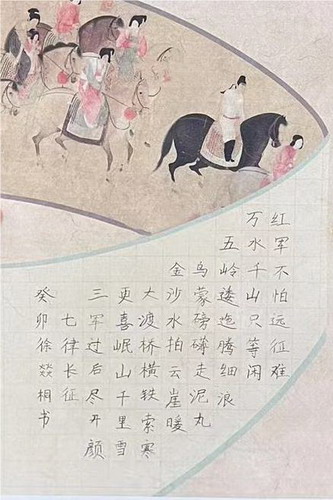 红军不怕远征难
万水千山只等闲
五岭逶迤腾细浪
乌蒙磅礴走泥丸
金沙水拍云崖暖
大渡桥横铁索寒
更喜岷山千里雪
三军过后尽开颜
七律长征
癸卯徐燚桐书